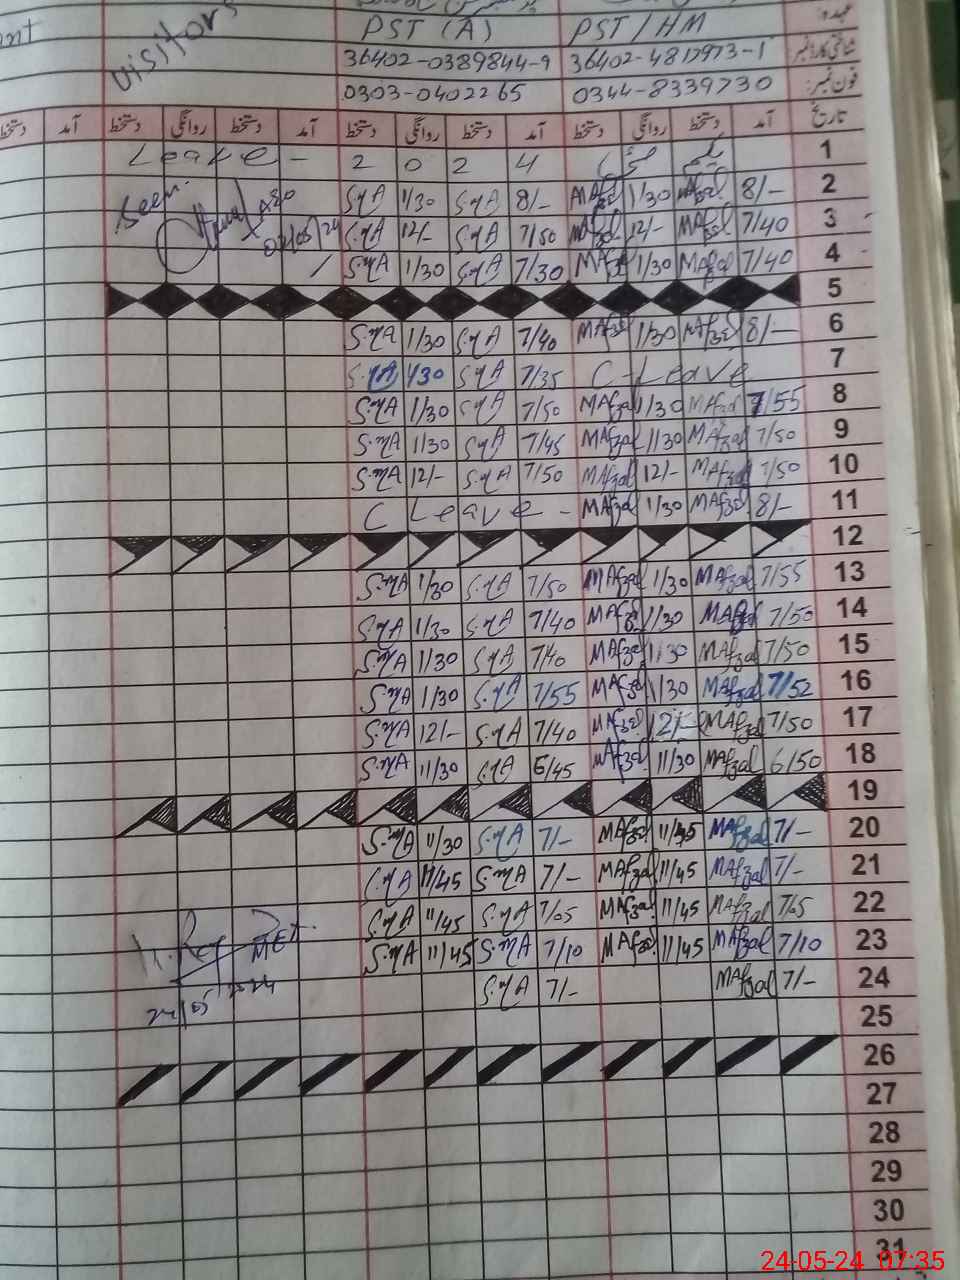 Visitors PST (A) PST / HM عہدہ:
36402-0389844-9 36402-4817973-1 شناختی کارڈ نمبر
0303-0402265 0344-8339730 فون نمبر:
دستخط آمد دستخط روانگی دستخط آمد دستخط روانگی دستخط آمد دستخط روانگی دستخط آمد تاریخ
Leave - 2 0 2 4 1
Seen. S.MA 1/30 S.MA 8/- MAfzal 1/30 MAfzal 8/- 2
S.MA 12/- S.MA 7/50 MAfzal 12/- MAfzal 7/40 3
S.MA 1/30 S.MA 7/30 MAfzal 1/30 MAfzal 7/40 4
5
S.MA 1/30 S.MA 7/40 MAfzal 1/30 MAfzal 8/- 6
S.MA 1/30 S.MA 7/35 C-Leave 7
S.MA 1/30 S.MA 7/50 MAfzal 1/30 MAfzal 7/55 8
S.MA 1130 S.MA 7/45 MAfzal 1130 MAfzal 7/50 9
S.MA 12/- S.MA 7/50 MAfzal 12/- MAfzal 7/50 10
C Leave - MAfzal 1/30 MAfzal 8/- 11
12
S.MA 1/30 S.MA 7/50 MAfzal 1/30 MAfzal 7/55 13
S.MA 1/30 S.MA 7/40 MAfzal 1/30 MAfzal 7/50 14
S.MA 1/30 S.MA 7/40 MAfzal 1/30 MAfzal 7/50 15
S.MA 1/30 S.MA 7/55 MAfzal 1/30 MAfzal 7/52 16
S.MA 12/- S.MA 7/40 MAfzal 12/- MAfzal 7/50 17
S.MA 11/30 S.MA 6/45 MAfzal 11/30 MAfzal 6/50 18
19
S.MA 11/30 S.MA 7/- MAfzal 11/45 MAfzal 7/- 20
S.MA 11/45 S.MA 7/- MAfzal 11/45 MAfzal 7/- 21
S.MA 11/45 S.MA 7/05 MAfzal 11/45 MAfzal 7/05 22
S.MA 11/45 S.MA 7/10 MAfzal 11/45 MAfzal 7/10 23
S.MA 7/- MAfzal 7/- 24
25
26
27
28
29
30
31
24-05-24 07:35